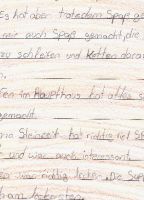 Es hat aber trotzdem Spaß ge
mir auch Spaß gemacht, die
zu schleifen und Ketten daran
en.
en im Haupthaus hat alles s
gemacht.
ma Steinzeit hat richtig viel S
und war auch interessant
war richtig lecker. Die Supp
am leckersten